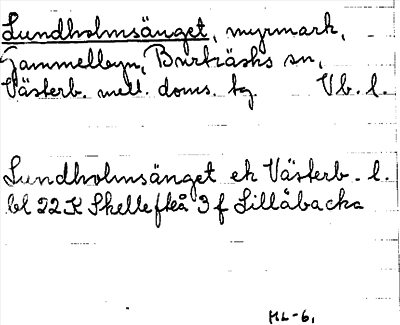 Lundholmsänget, myrmark,
Gammelbyn, Burträsks sn,
Västerb. mell. doms. tg. Vb. l.
Lundholmsänget ek Västerb. l.
bl 22 K Skellefteå 3 f Lillåbacka
HL-6.